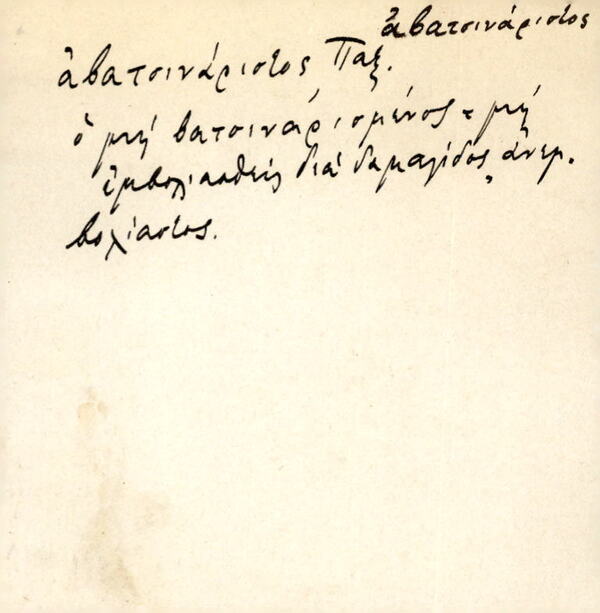 ἀβατσινάριστος
ἀβατσινάριστος Παξ.
ὁ μή βατσιναρισμένος, μή
ἐμβολιασθείς διά δαμαλίδος, ἀνεμ-
βολίαστος.